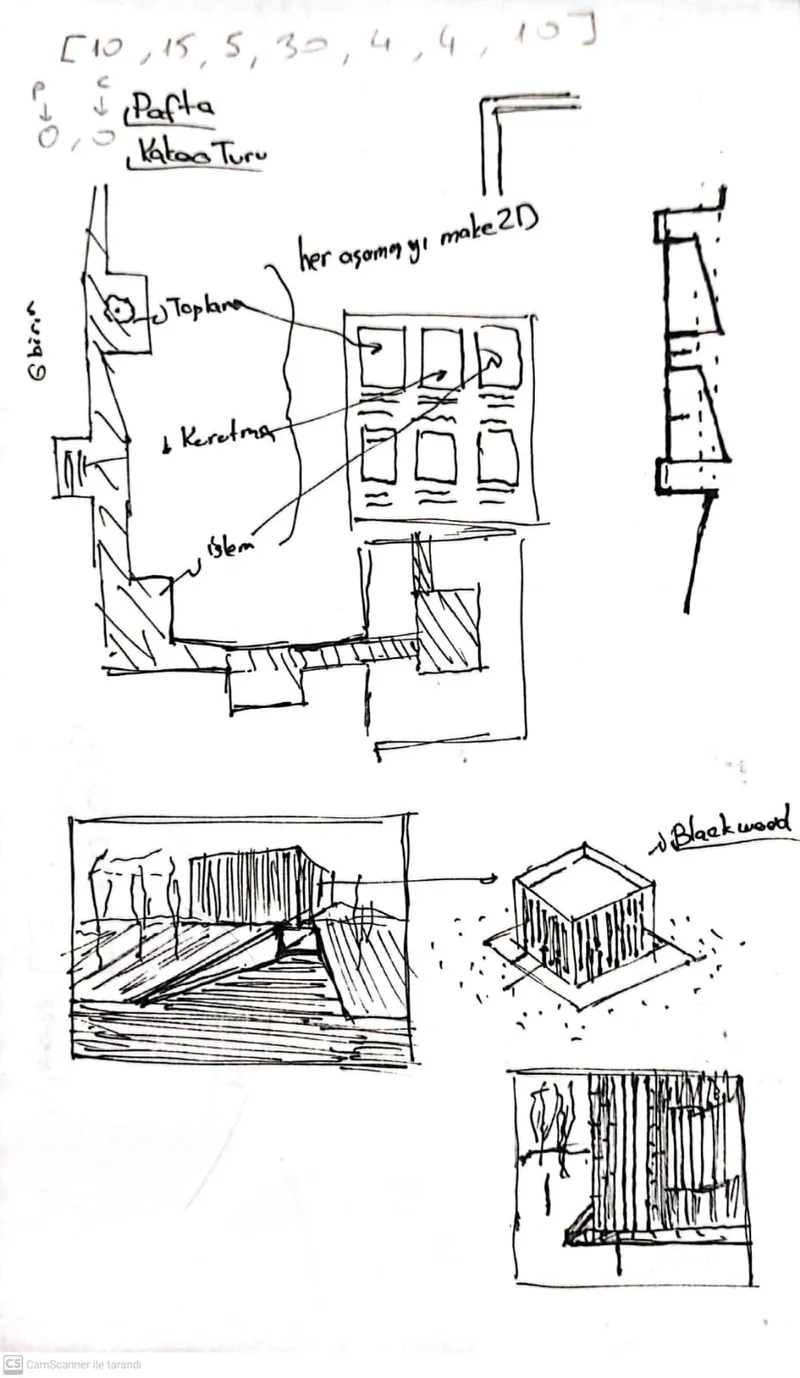 [10, 15, 5, 30, 4, 4, 10]
P C
0, 0
Pafta
Kakao Turu
her aşamayı make2D
Toplama
6 birim
Kurutma
işlem
Blackwood
CS CamScanner ile tarandı